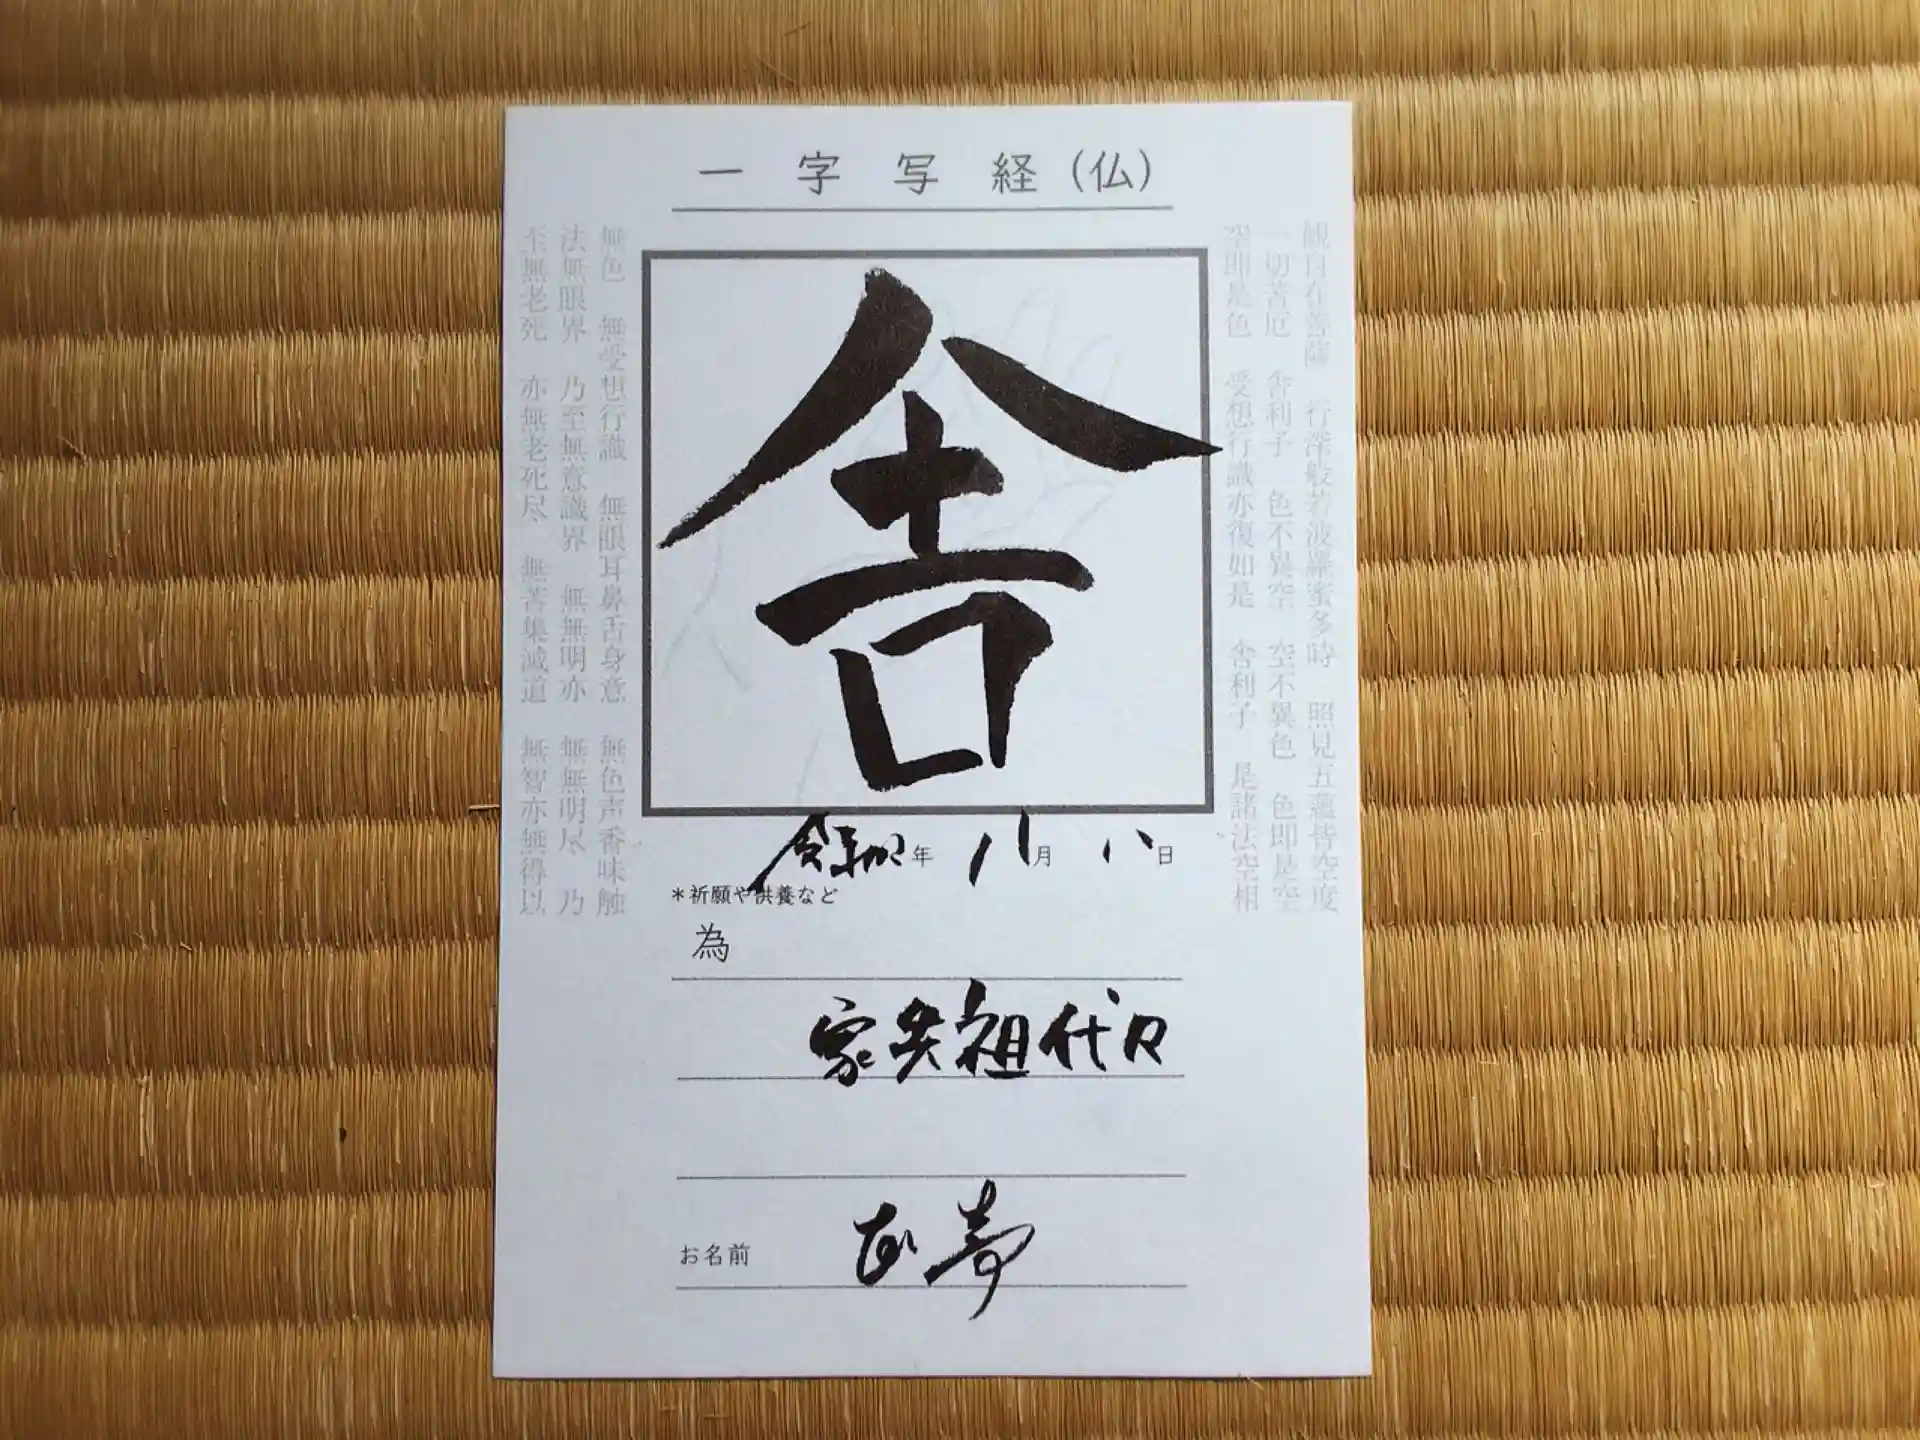 一字写経（仏）
観自在菩薩　行深般若波羅蜜多時　照見五蘊皆空度
一切苦厄　舎利子　色不異空　空不異色　色即是空
空即是色　受想行識亦復如是　舎利子　是諸法空相
舎
無色　無受想行識　無眼耳鼻舌身意　無色声香味触
法無眼界　乃至無意識界　無無明亦　無無明尽　乃
至無老死　亦無老死尽　無苦集滅道　無智亦無得以
令和　年　八月　八日
＊祈願や供養など
為
家先祖代々
お名前